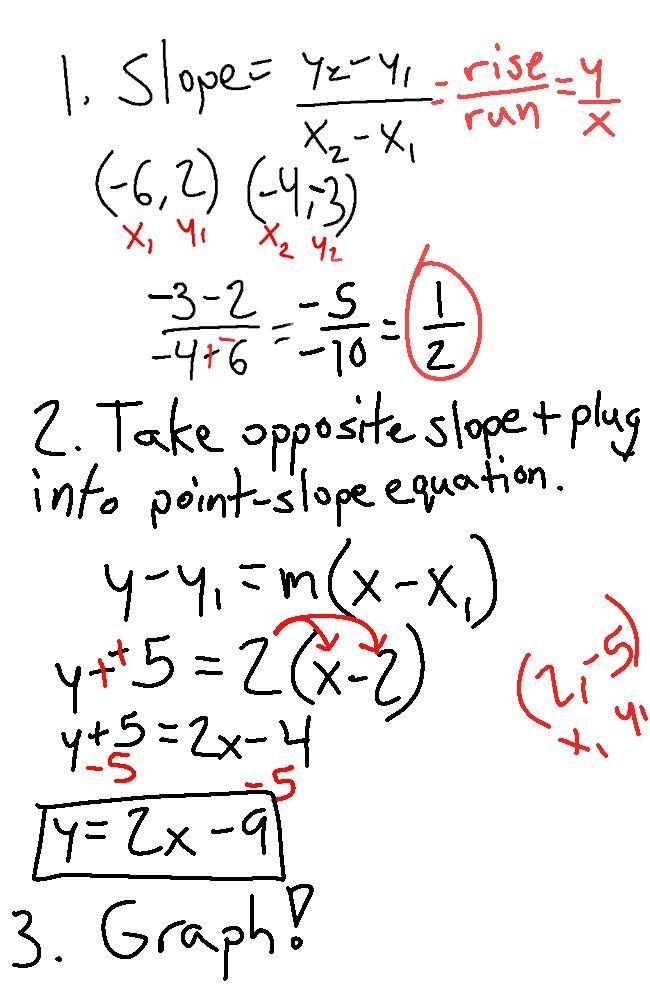 1. Slope = y₂-y₁/x₂-x₁ = rise/run = y/x
(-6, 2) (-4, -3)
x₁ y₁ x₂ y₂
-3-2/-4+-6 = -5/-10 = 1/2
2. Take opposite slope + plug
into point-slope equation.
y-y₁ = m(x-x₁)
y++5 = 2(x-2) (2, -5)
x₁ y₁
y+5 = 2x-4
-5 -5
y = 2x-9
3. Graph!